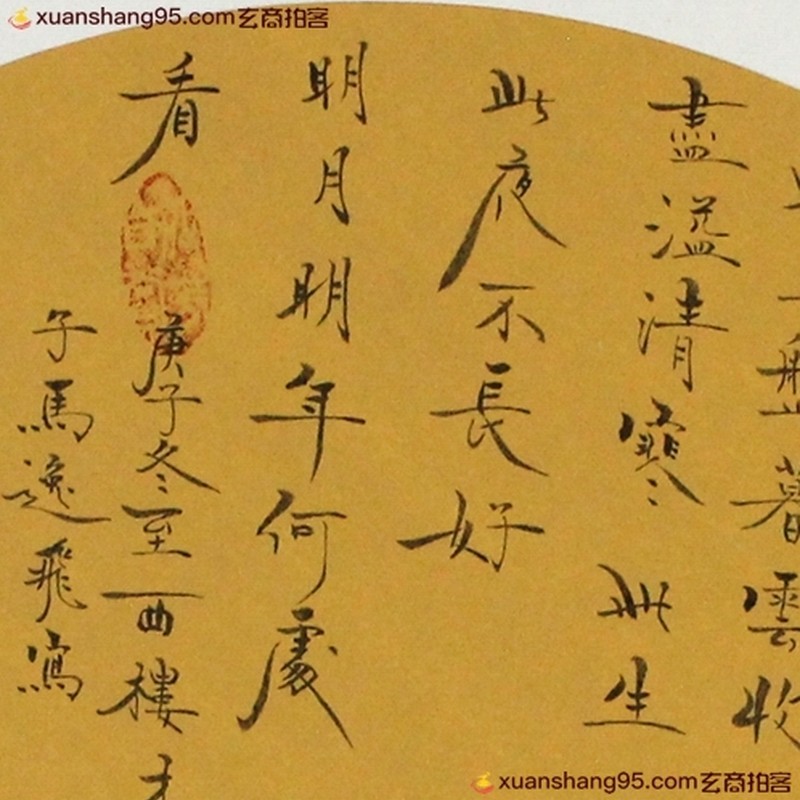 xuanshang95.com玄商拍客
暮雲收
盡溢清寒此生
此夜不長好
明月明年何處
看
庚子冬至西樓
子馬逸飛寫
xuanshang95.com玄商拍客